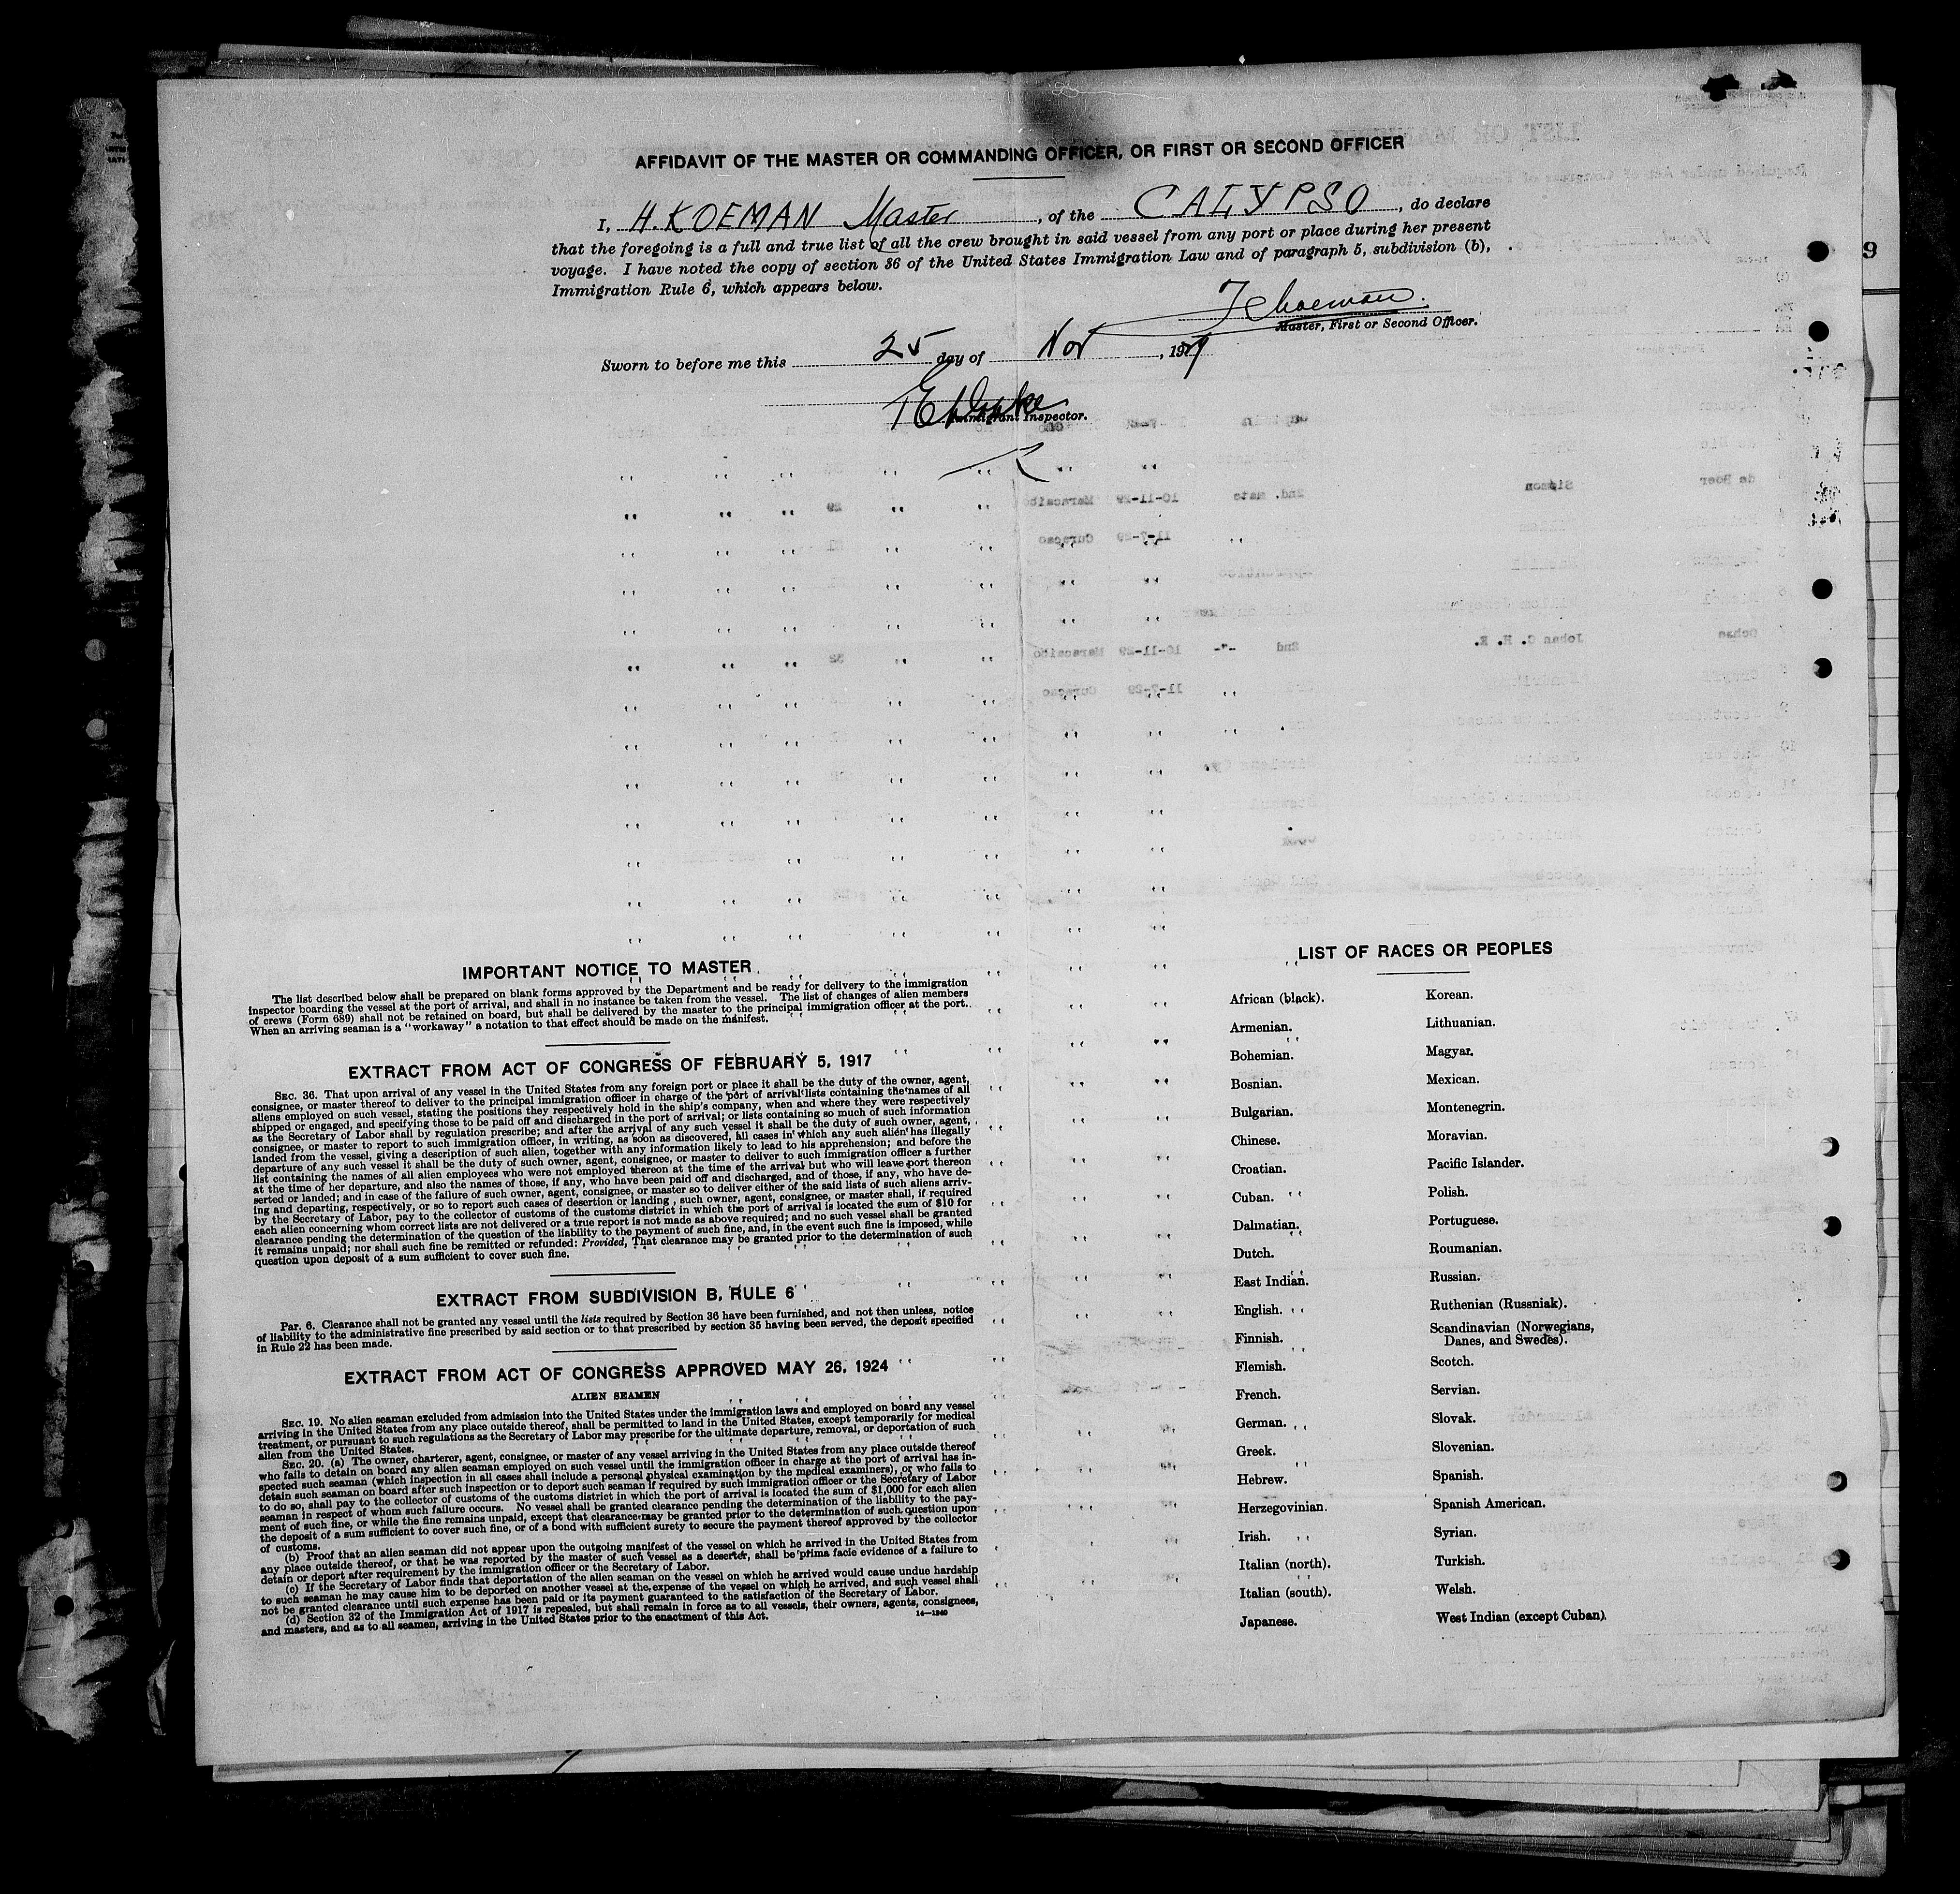 AFFIDAVIT OF THE MASTER OR COMMANDING OFFICER, OR FIRST OR SECOND OFFICER
I, H. KOEMAN Master, of the CALYPSO, do declare
that the foregoing is a full and true list of all the crew brought in said vessel from any port or place during her present
voyage. I have noted the copy of section 36 of the United States Immigration Law and of paragraph 5, subdivision (b),
Immigration Rule 6, which appears below.
Koeman.
Master, First or Second Officer.
Sworn to before me this 25 day of Nov, 1929
Immigrant Inspector.
IMPORTANT NOTICE TO MASTER
The list described below shall be prepared on blank forms approved by the Department and be ready for delivery to the immigration
inspector boarding the vessel at the port of arrival, and shall in no instance be taken from the vessel. The list of changes of alien members
of crews (Form 689) shall not be retained on board, but shall be delivered by the master to the principal immigration officer at the port.
When an arriving seaman is a "workaway" a notation to that effect should be made on the manifest.
EXTRACT FROM ACT OF CONGRESS OF FEBRUARY 5, 1917
SEC. 36. That upon arrival of any vessel in the United States from any foreign port or place it shall be the duty of the owner, agent,
consignee, or master thereof to deliver to the principal immigration officer in charge of the port of arrival lists containing the names of all
aliens employed on such vessel, stating the positions they respectively hold in the ship's company, when and where they were respectively
shipped or engaged, and specifying those to be paid off and discharged in the port of arrival; or lists containing so much of such information
as the Secretary of Labor shall by regulation prescribe; and after the arrival of any such vessel it shall be the duty of such owner, agent,
consignee, or master to report to such immigration officer, in writing, as soon as discovered, all cases in which any such alien has illegally
landed from the vessel, giving a description of such alien, together with any information likely to lead to his apprehension; and before the
departure of any such vessel it shall be the duty of such owner, agent, consignee, or master to deliver to such immigration officer a further
list containing the names of all alien employees who were not employed thereon at the time of the arrival but who will leave port thereon
at the time of her departure, and also the names of those, if any, who have been paid off and discharged, and of those, if any, who have de-
serted or landed; and in case of the failure of such owner, agent, consignee, or master so to deliver either of the said lists of such aliens arriv-
ing and departing, respectively, or so to report such cases of desertion or landing, such owner, agent, consignee, or master shall, if required
by the Secretary of Labor, pay to the collector of customs of the customs district in which the port of arrival is located the sum of $10 for
each alien concerning whom correct lists are not delivered or a true report is not made as above required; and no such vessel shall be granted
clearance pending the determination of the question of the liability to the payment of such fine, and, in the event such fine is imposed, while
it remains unpaid; nor shall such fine be remitted or refunded: Provided, That clearance may be granted prior to the determination of such
question upon deposit of a sum sufficient to cover such fine.
EXTRACT FROM SUBDIVISION B, RULE 6
Par. 6. Clearance shall not be granted any vessel until the lists required by Section 36 have been furnished, and not then unless, notice
of liability to the administrative fine prescribed by said section or to that prescribed by section 35 having been served, the deposit specified
in Rule 22 has been made.
EXTRACT FROM ACT OF CONGRESS APPROVED MAY 26, 1924
ALIEN SEAMEN
SEC. 19. No alien seaman excluded from admission into the United States under the immigration laws and employed on board any vessel
arriving in the United States from any place outside thereof, shall be permitted to land in the United States, except temporarily for medical
treatment, or pursuant to such regulations as the Secretary of Labor may prescribe for the ultimate departure, removal, or deportation of such
alien from the United States.
SEC. 20. (a) The owner, charterer, agent, consignee, or master of any vessel arriving in the United States from any place outside thereof
who fails to detain on board any alien seaman employed on such vessel until the immigration officer in charge at the port of arrival has in-
spected such seaman (which inspection in all cases shall include a personal physical examination by the medical examiners), or who fails to
detain such seaman on board after such inspection or to deport such seaman if required by such immigration officer or the Secretary of Labor
to do so, shall pay to the collector of customs of the customs district in which the port of arrival is located the sum of $1,000 for each alien
seaman in respect of whom such failure occurs. No vessel shall be granted clearance pending the determination of the liability to the pay-
ment of such fine, or while the fine remains unpaid, except that clearance may be granted prior to the determination of such question upon
the deposit of a sum sufficient to cover such fine, or of a bond with sufficient surety to secure the payment thereof approved by the collector
of customs.
(b) Proof that an alien seaman did not appear upon the outgoing manifest of the vessel on which he arrived in the United States from
any place outside thereof, or that he was reported by the master of such vessel as a deserter, shall be prima facie evidence of a failure to
detain or deport after requirement by the immigration officer or the Secretary of Labor.
(c) If the Secretary of Labor finds that deportation of the alien seaman on the vessel on which he arrived would cause undue hardship
to such seaman he may cause him to be deported on another vessel at the expense of the vessel on which he arrived, and such vessel shall
not be granted clearance until such expense has been paid or its payment guaranteed to the satisfaction of the Secretary of Labor.
(d) Section 32 of the Immigration Act of 1917 is repealed, but shall remain in force as to all vessels, their owners, agents, consignees,
and masters, and as to all seamen, arriving in the United States prior to the enactment of this Act.
14—1240
LIST OF RACES OR PEOPLES
African (black).
Armenian.
Bohemian.
Bosnian.
Bulgarian.
Chinese.
Croatian.
Cuban.
Dalmatian.
Dutch.
East Indian.
English.
Finnish.
Flemish.
French.
German.
Greek.
Hebrew.
Herzegovinian.
Irish.
Italian (north).
Italian (south).
Japanese.
Korean.
Lithuanian.
Magyar.
Mexican.
Montenegrin.
Moravian.
Pacific Islander.
Polish.
Portuguese.
Roumanian.
Russian.
Ruthenian (Russniak).
Scandinavian (Norwegians,
Danes, and Swedes).
Scotch.
Servian.
Slovak.
Slovenian.
Spanish.
Spanish American.
Syrian.
Turkish.
Welsh.
West Indian (except Cuban).
9